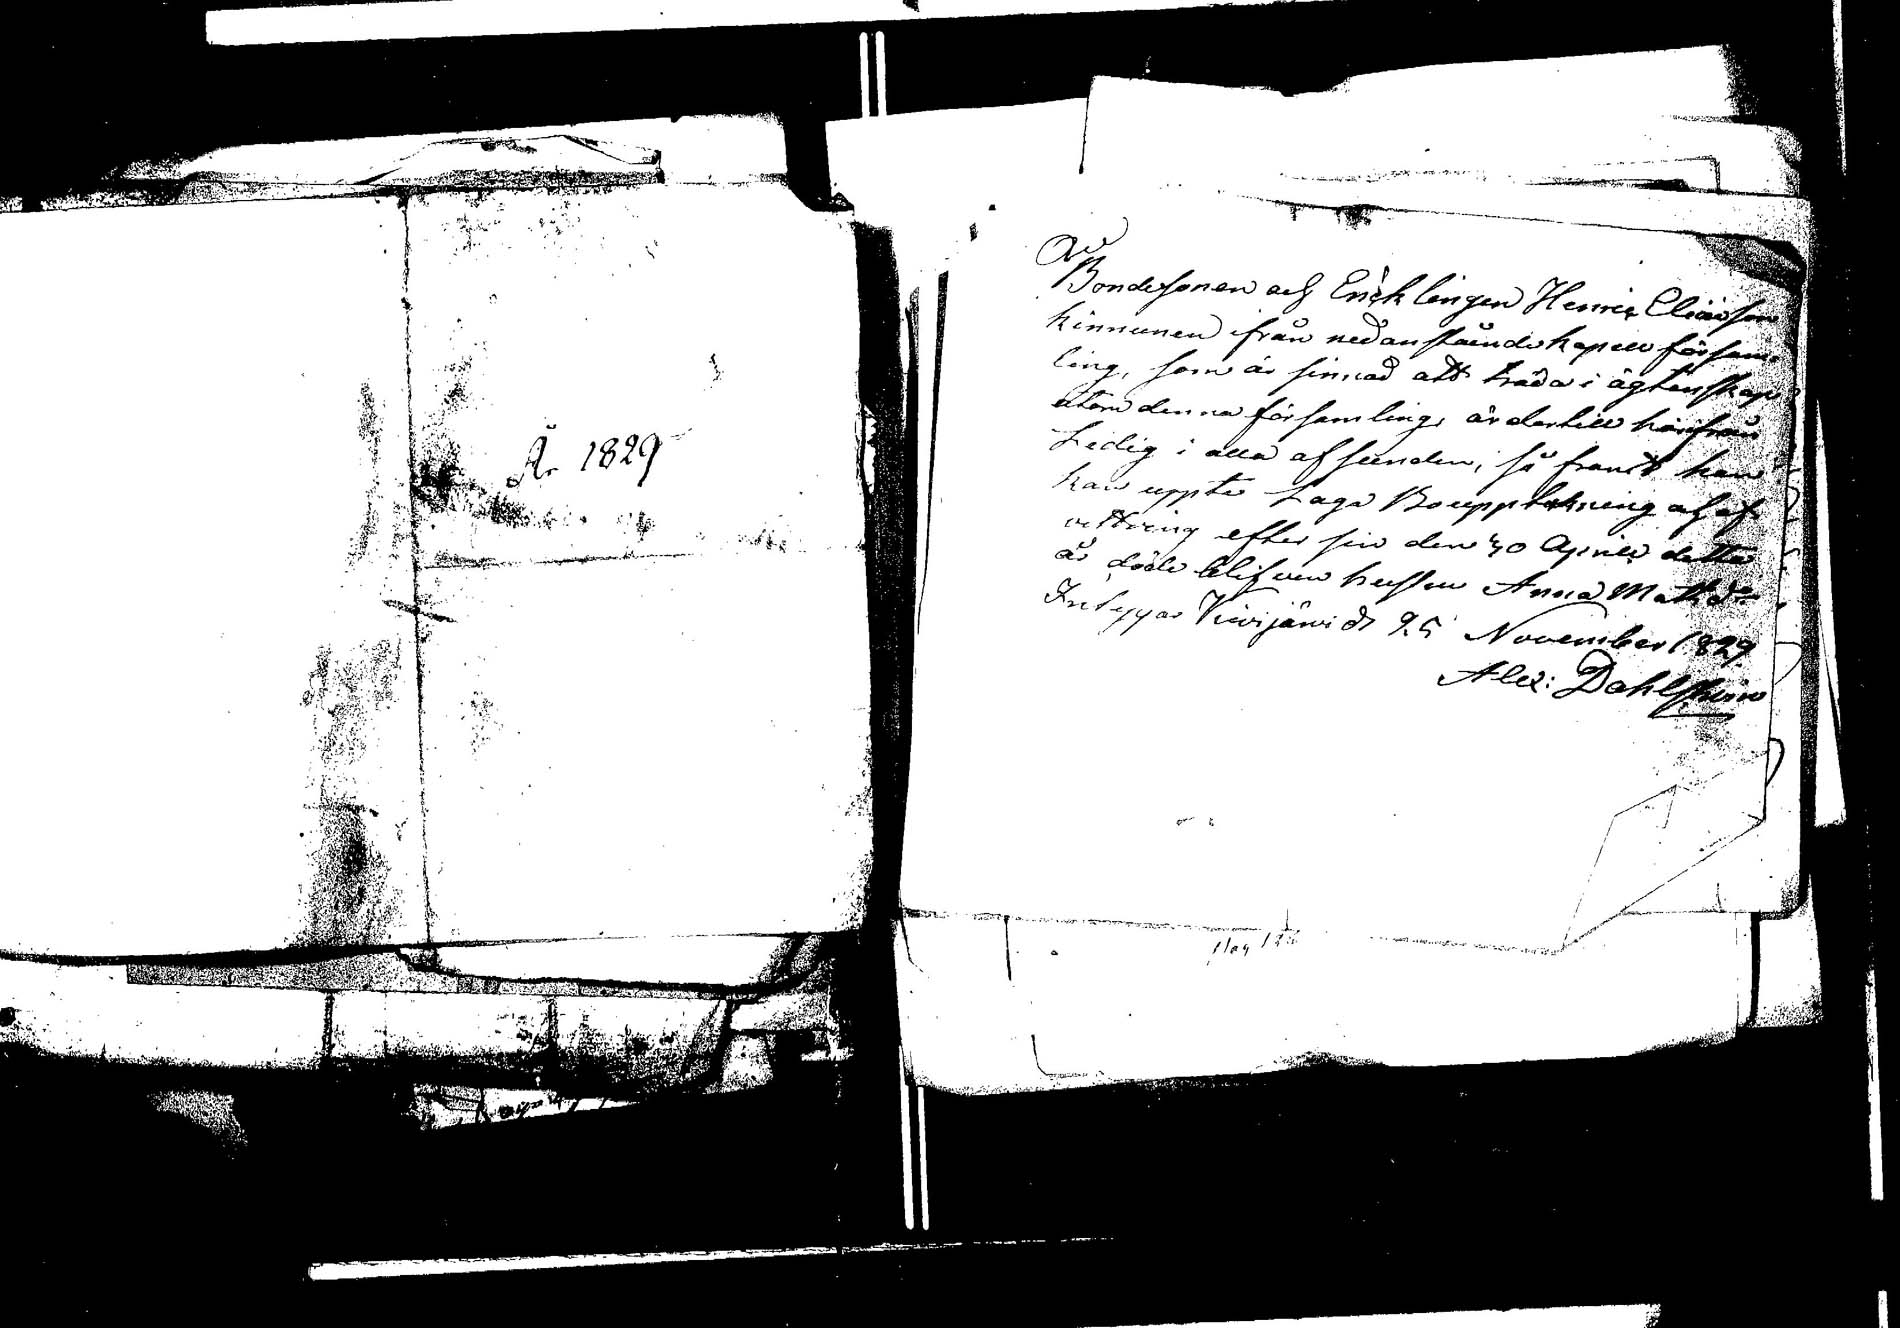 År 1829
Att
Bondesonen och Enklingen Henric Eliasson
Kinnunen ifrån nedanstående kapell försam-
ling, som är sinnad att träda i ägtenskap
utom denna församling, är dertill härifrån
Ledig i alla afseenden, så framt han
kan uppte Laga Bouppteckning och af
vittring efter sin den 30 Aprill detta
år döde blifven hustru Anna Matsdr
Intygar Kivijärvi d. 25 November 1829
Alex: Dahlström